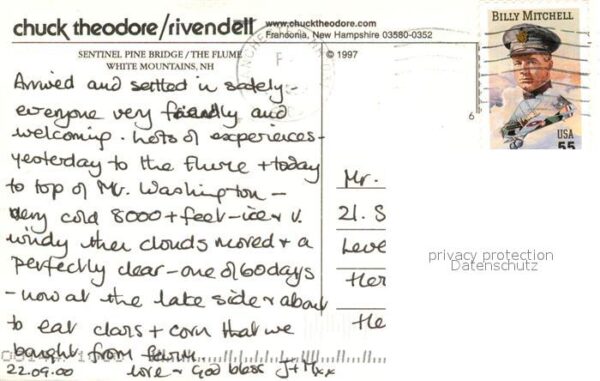 chuck theodore/rivendell www.chucktheodore.com
Franconia, New Hampshire 03580-0352
SENTINEL PINE BRIDGE/THE FLUME
WHITE MOUNTAINS, NH
© 1997
BILLY MITCHELL
USA
55
6
Arrived and settled in safely -
everyone very friendly and
welcoming. Lots of experiences -
yesterday to the flume + today
to top of Mt. Washington -
very cold 8000 + feet - ice + v.
windy then clouds moved + a
perfectly clear - one of 60 days
- now at the lake side + about
to eat clams + corn that we
bought from farm.
22.09.00 love + God bless J+M xx
Mr.
21. S
Leve
Her
He
privacy protection
Datenschutz